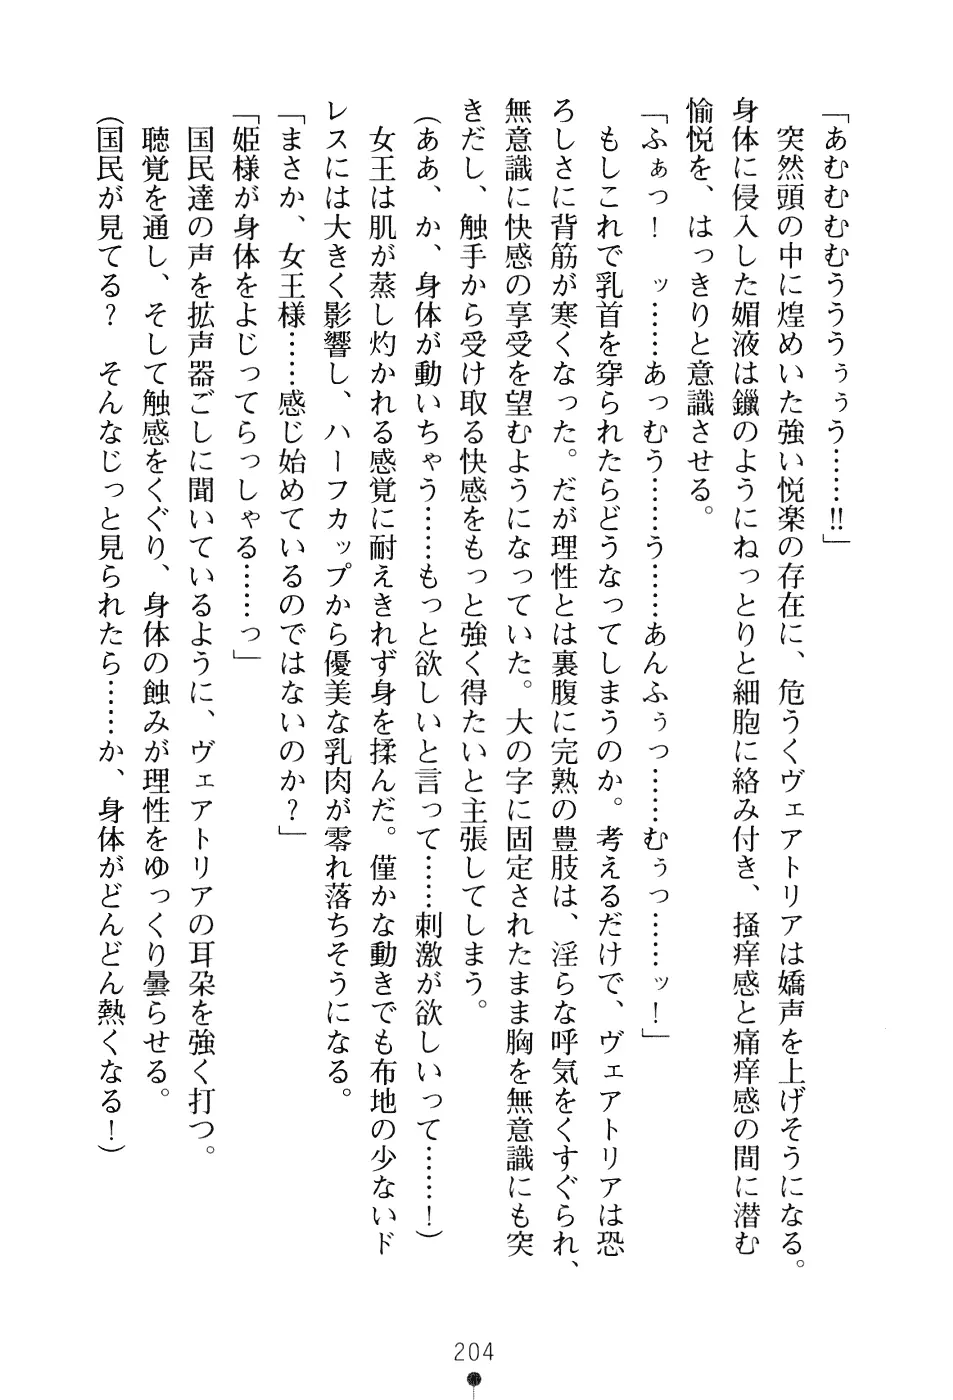 「あむむむむうううぅぅう……‼」
　突然頭の中に煌めいた強い悦楽の存在に、危うくヴェアトリアは嬌声を上げそうになる。
身体に侵入した媚液は鑞のようにねっとりと細胞に絡み付き、掻痒感と痛痒感の間に潜む
愉悦を、はっきりと意識させる。
「ふぁっ！　ッ……あっむう……う……あんふぅっ……むぅっ……ッ！」
　もしこれで乳首を穿られたらどうなってしまうのか。考えるだけで、ヴェアトリアは恐
ろしさに背筋が寒くなった。だが理性とは裏腹に完熟の豊肢は、淫らな呼気をくすぐられ、
無意識に快感の享受を望むようになっていた。大の字に固定されたまま胸を無意識にも突
きだし、触手から受け取る快感をもっと強く得たいと主張してしまう。
（ああ、か、身体が動いちゃう……もっと欲しいと言って……刺激が欲しいって……！）
　女王は肌が蒸し灼かれる感覚に耐えきれず身を揉んだ。僅かな動きでも布地の少ないド
レスには大きく影響し、ハーフカップから優美な乳肉が零れ落ちそうになる。
「まさか、女王様……感じ始めているのではないのか？」
「姫様が身体をよじってらっしゃる……っ」
　国民達の声を拡声器ごしに聞いているように、ヴェアトリアの耳朶を強く打つ。
　聴覚を通し、そして触感をくぐり、身体の蝕みが理性をゆっくり曇らせる。
（国民が見てる？　そんなじっと見られたら……か、身体がどんどん熱くなる！）
204